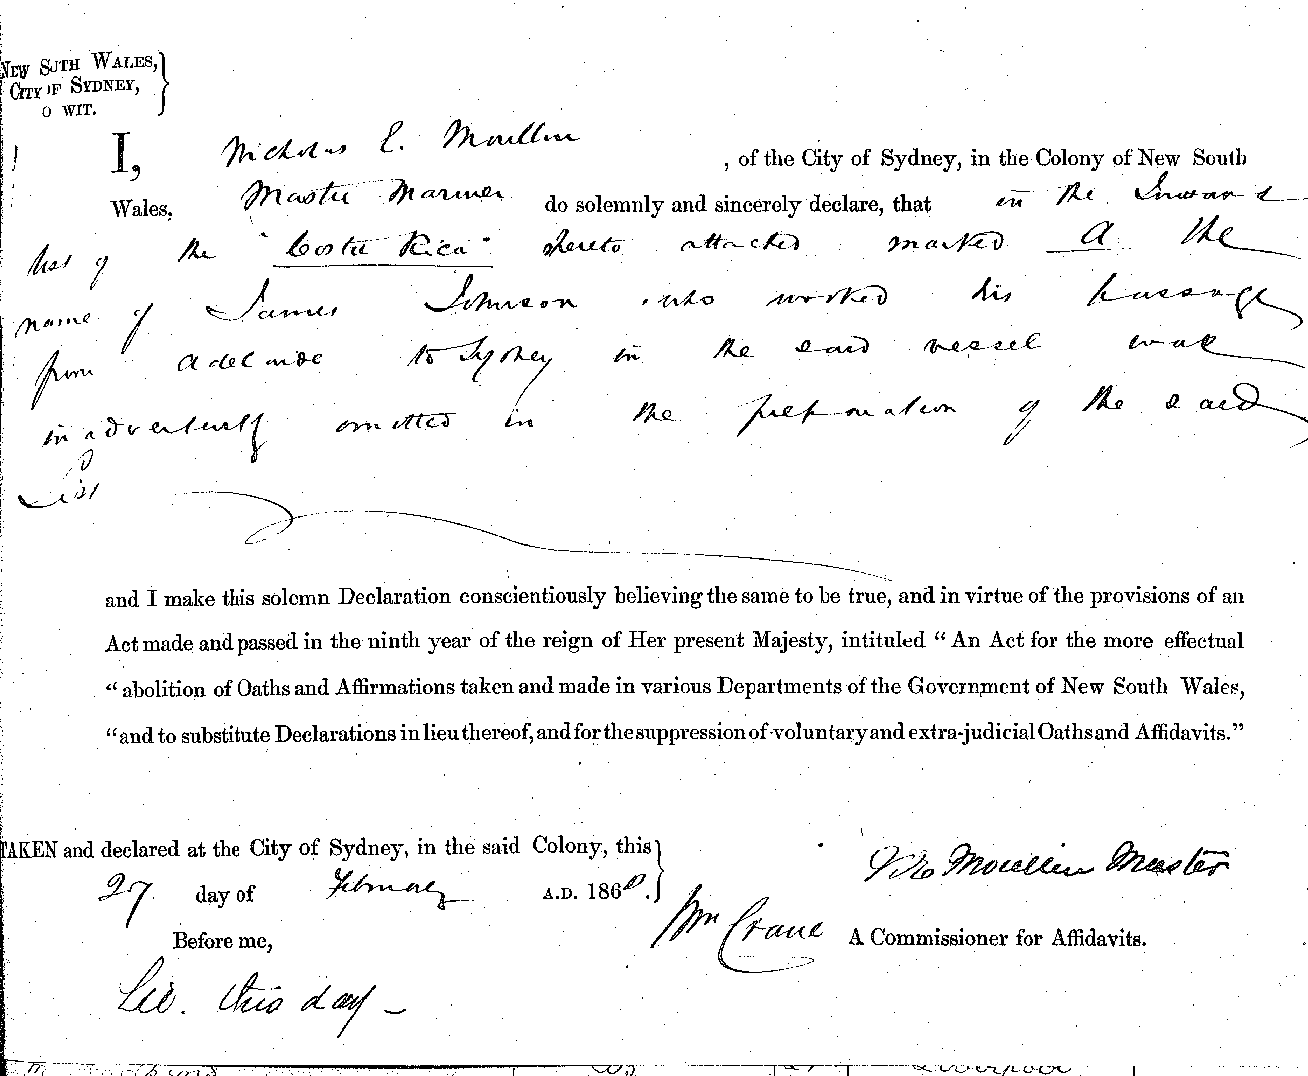 NEW SOUTH WALES,
CITY OF SYDNEY,
TO WIT.
I, Nicholas E. Moullin, of the City of Sydney, in the Colony of New South
Wales, Master Mariner do solemnly and sincerely declare, that in the Inward
list of the "Costa Rica" hereto attached marked A the
name of James Johnson who worked his passage
from Adelaide to Sydney in the said vessel was
inadvertently omitted in the preparation of the said
List
and I make this solemn Declaration conscientiously believing the same to be true, and in virtue of the provisions of an
Act made and passed in the ninth year of the reign of Her present Majesty, intituled “An Act for the more effectual
“abolition of Oaths and Affirmations taken and made in various Departments of the Government of New South Wales,
“and to substitute Declarations in lieu thereof, and for the suppression of voluntary and extra-judicial Oaths and Affidavits.”
TAKEN and declared at the City of Sydney, in the said Colony, this
27 day of February A.D. 1868.
Moullin Master
Before me,
Wm Crane A Commissioner for Affidavits.
this day
Liverpool